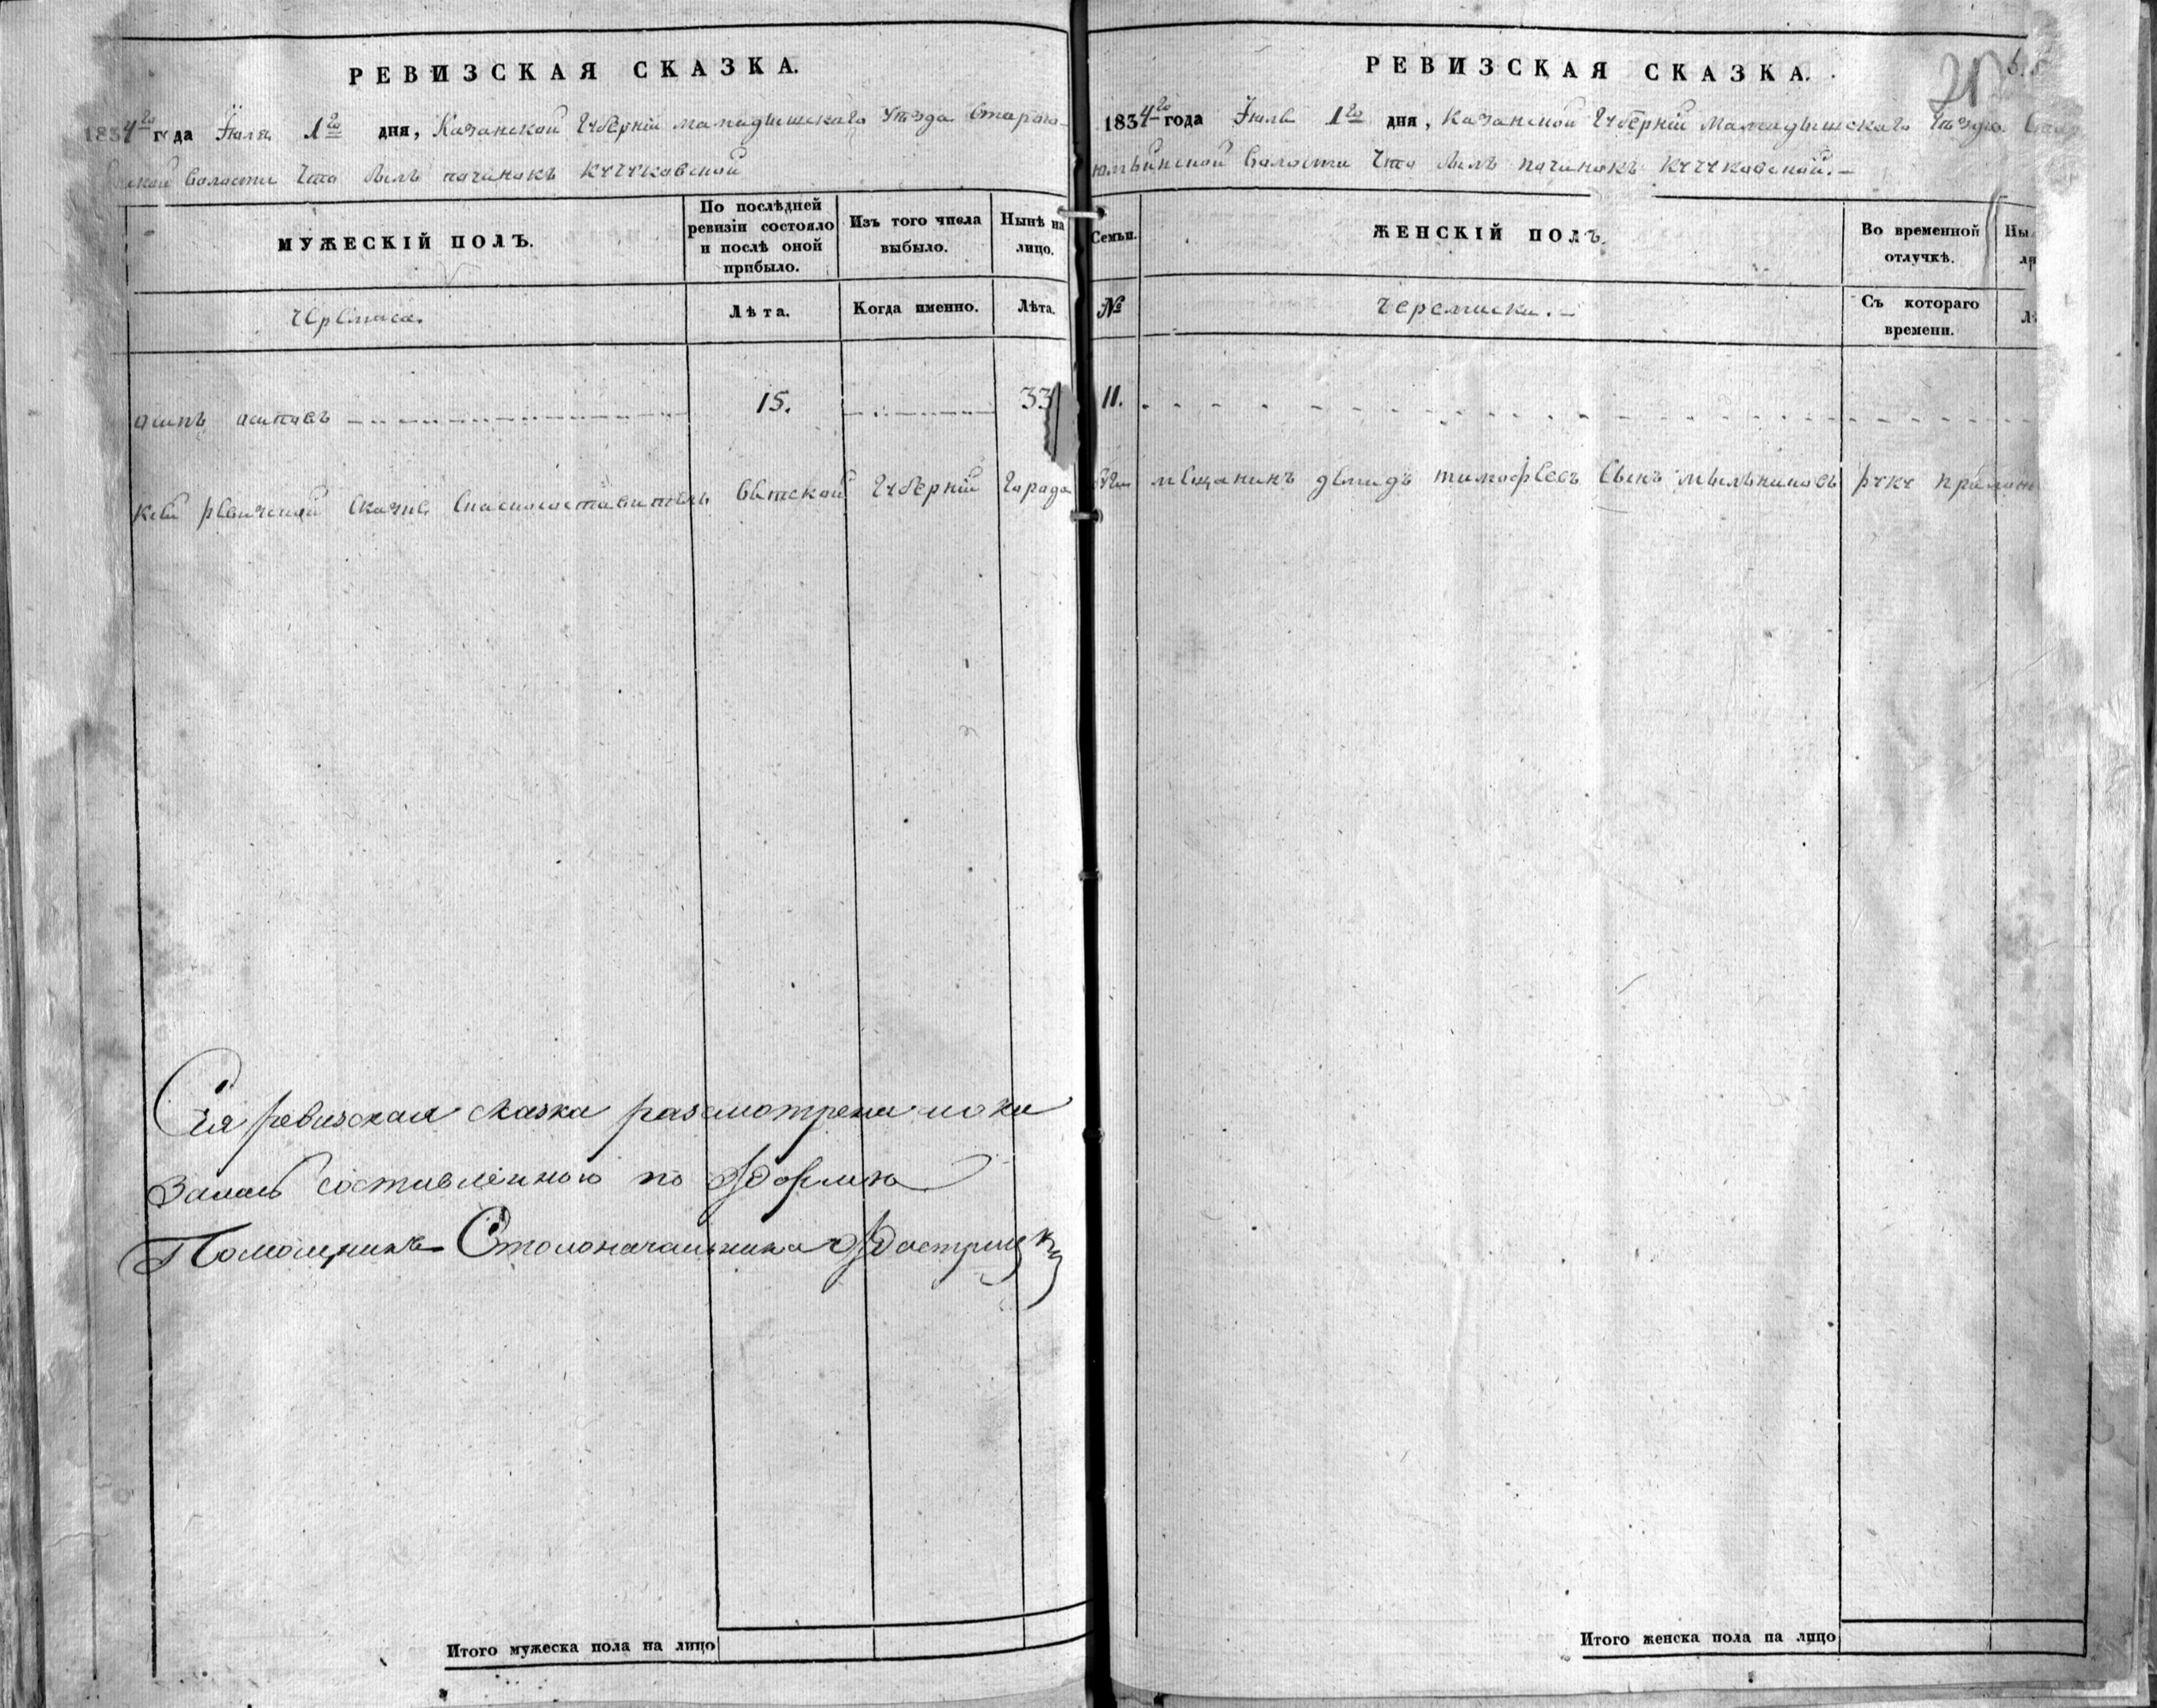 РЕВИЗСКАЯ СКАЗКА.
1834го года Июля 1го дня, Казанской Губернiи мамадышскаго Уѣзда Старою
ской Волости Что былъ починокъ Кучуковской
МУЖЕСКIЙ ПОЛЪ.
По послѣдней ревизiи состояло и послѣ оной прибыло.
Изъ того числа выбыло.
Ныпѣ на лицо.
Лѣта.
Когда именно.
Лѣта.
осипъ осиповъ 15. 33
кой ревиской скаски Вятской Губернiи Города
Сiя ревизская сказка разсмотрена и ока
залась составленною по Формѣ
Помощникъ Столоначальника
Итого мужеска пола на лицо
РЕВИЗСКАЯ СКАЗКА.
1834го года Июля 1го дня, Казанской Губернiи Мамадышскаго Уѣзда Стар
юмьинской Волости Что былъ починокъ Кучуковской.
Семьи.
ЖЕНСКIЙ ПОЛЪ.
Во временной отлучкѣ.
Ны
№
Черемиски.
Съ котораго времени.
11.
мещанинъ демидъ тимофеевъ Сынъ мыльниковъ руку прилож
Итого женска пола на лицо